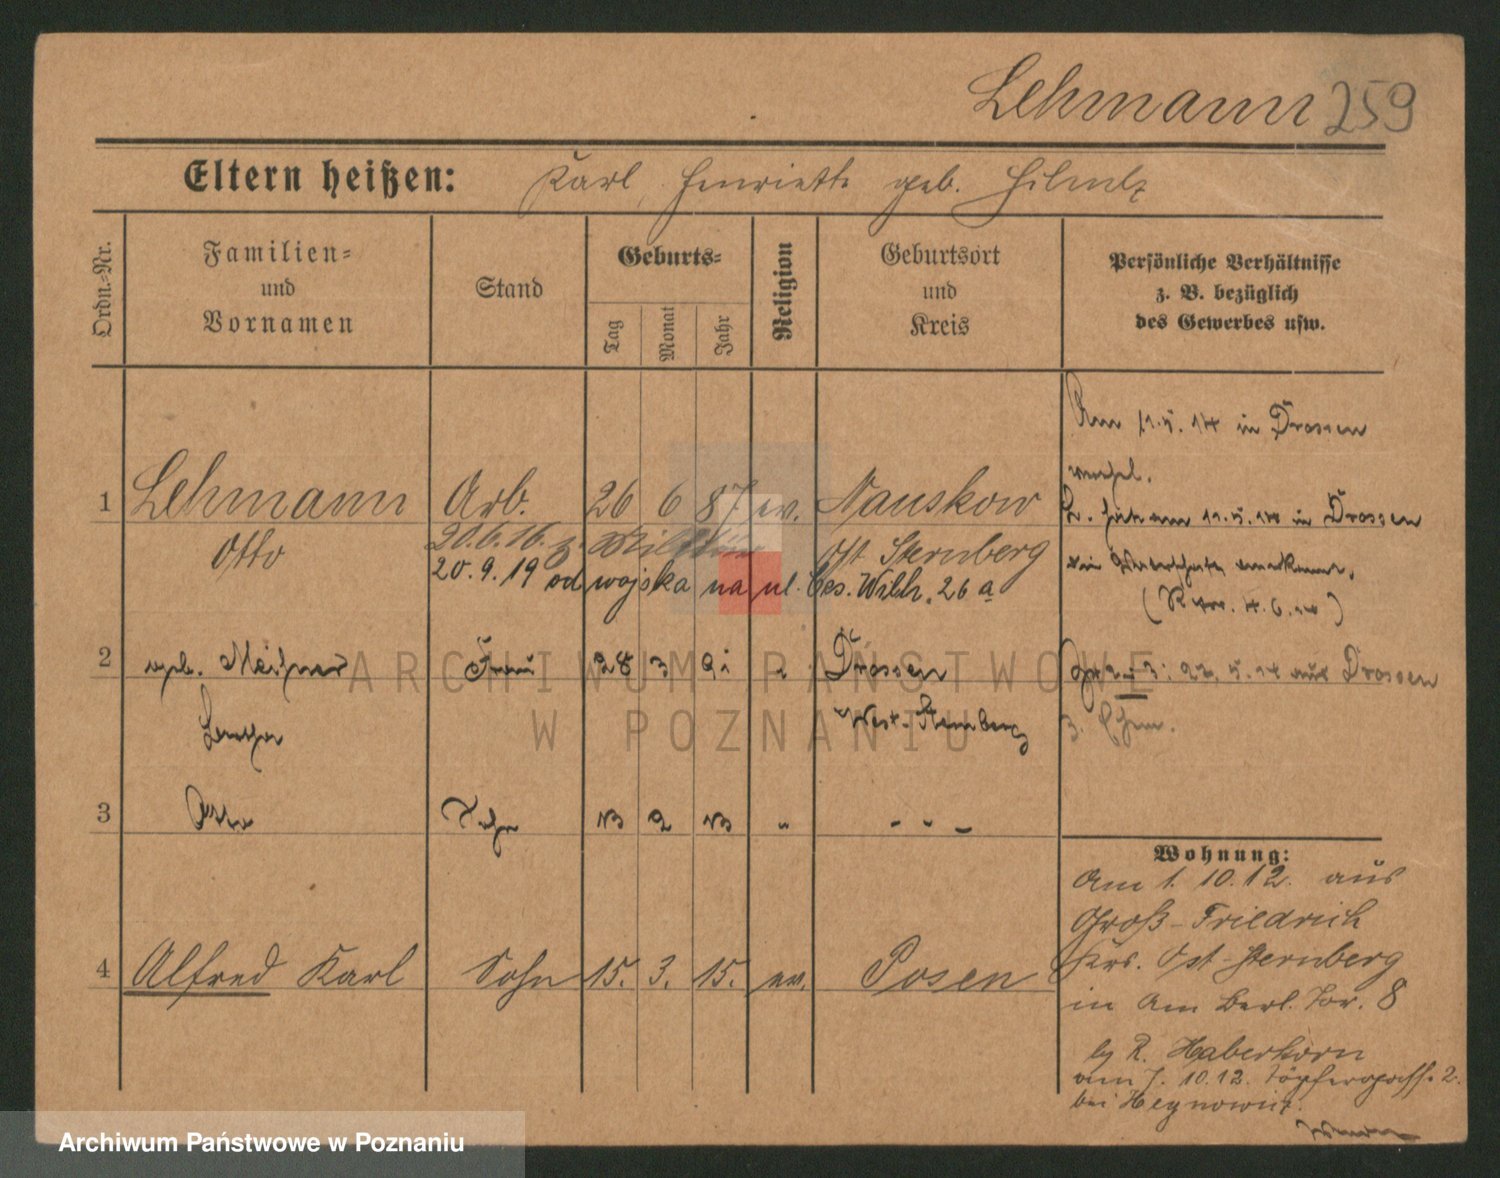 Lehmann 259
Eltern heißen: Karl, Henriette geb.
Ordn.-Nr.
Familien-
und
Vornamen
Stand
Geburts-
Tag
Monat
Jahr
Religion
Geburtsort
und
Kreis
Persönliche Verhältnisse
z. B. bezüglich
des Gewerbes usw.
Am 11.5.14 in Drossen
1 Lehmann Arb. 26 6 87 ev. Nauskow
in Drossen
Otto 20.6.16. z. Militär Ost Sternberg
20.9.19 od wojska na ul. Ces. Wilh. 26 a
2 geb. Frau 28 3 91 " Drossen
2 u 3: 22.5.14 aus Drossen
West-Sternberg
3 Otto Sohn 13 2 13 " - - -
Wohnung:
Am 1. 10. 12. aus
Groß-Friedrich
Krs. Ost-Sternberg
4 Alfred Karl Sohn 15. 3. 15. ev. Posen
in Am Berl. Tor. 8
by R. Haberkorn
am 7. 10. 12. Töpfergasse 2.
bei
ARCHIWUM PAŃSTWOWE
W POZNANIU
Archiwum Państwowe w Poznaniu